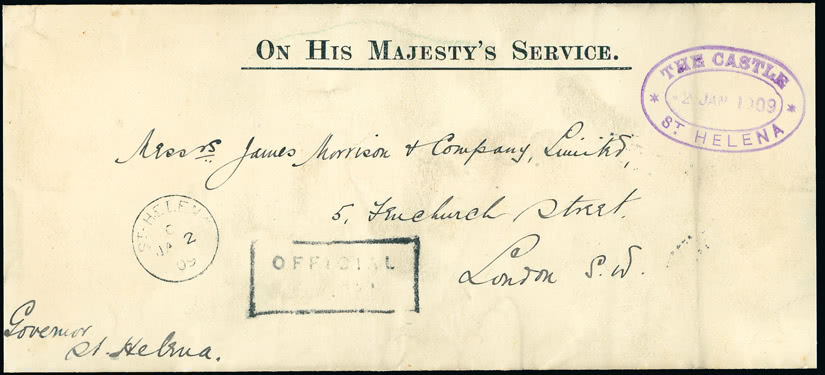 ON HIS MAJESTY'S SERVICE.
THE CASTLE
2 JAN 1909
ST HELENA
Messrs James Morrison & Company, Limited,
5, Fenchurch Street.
London S.W.
ST. HELENA
C
JA 2
09
OFFICIAL
Governor
St. Helena.